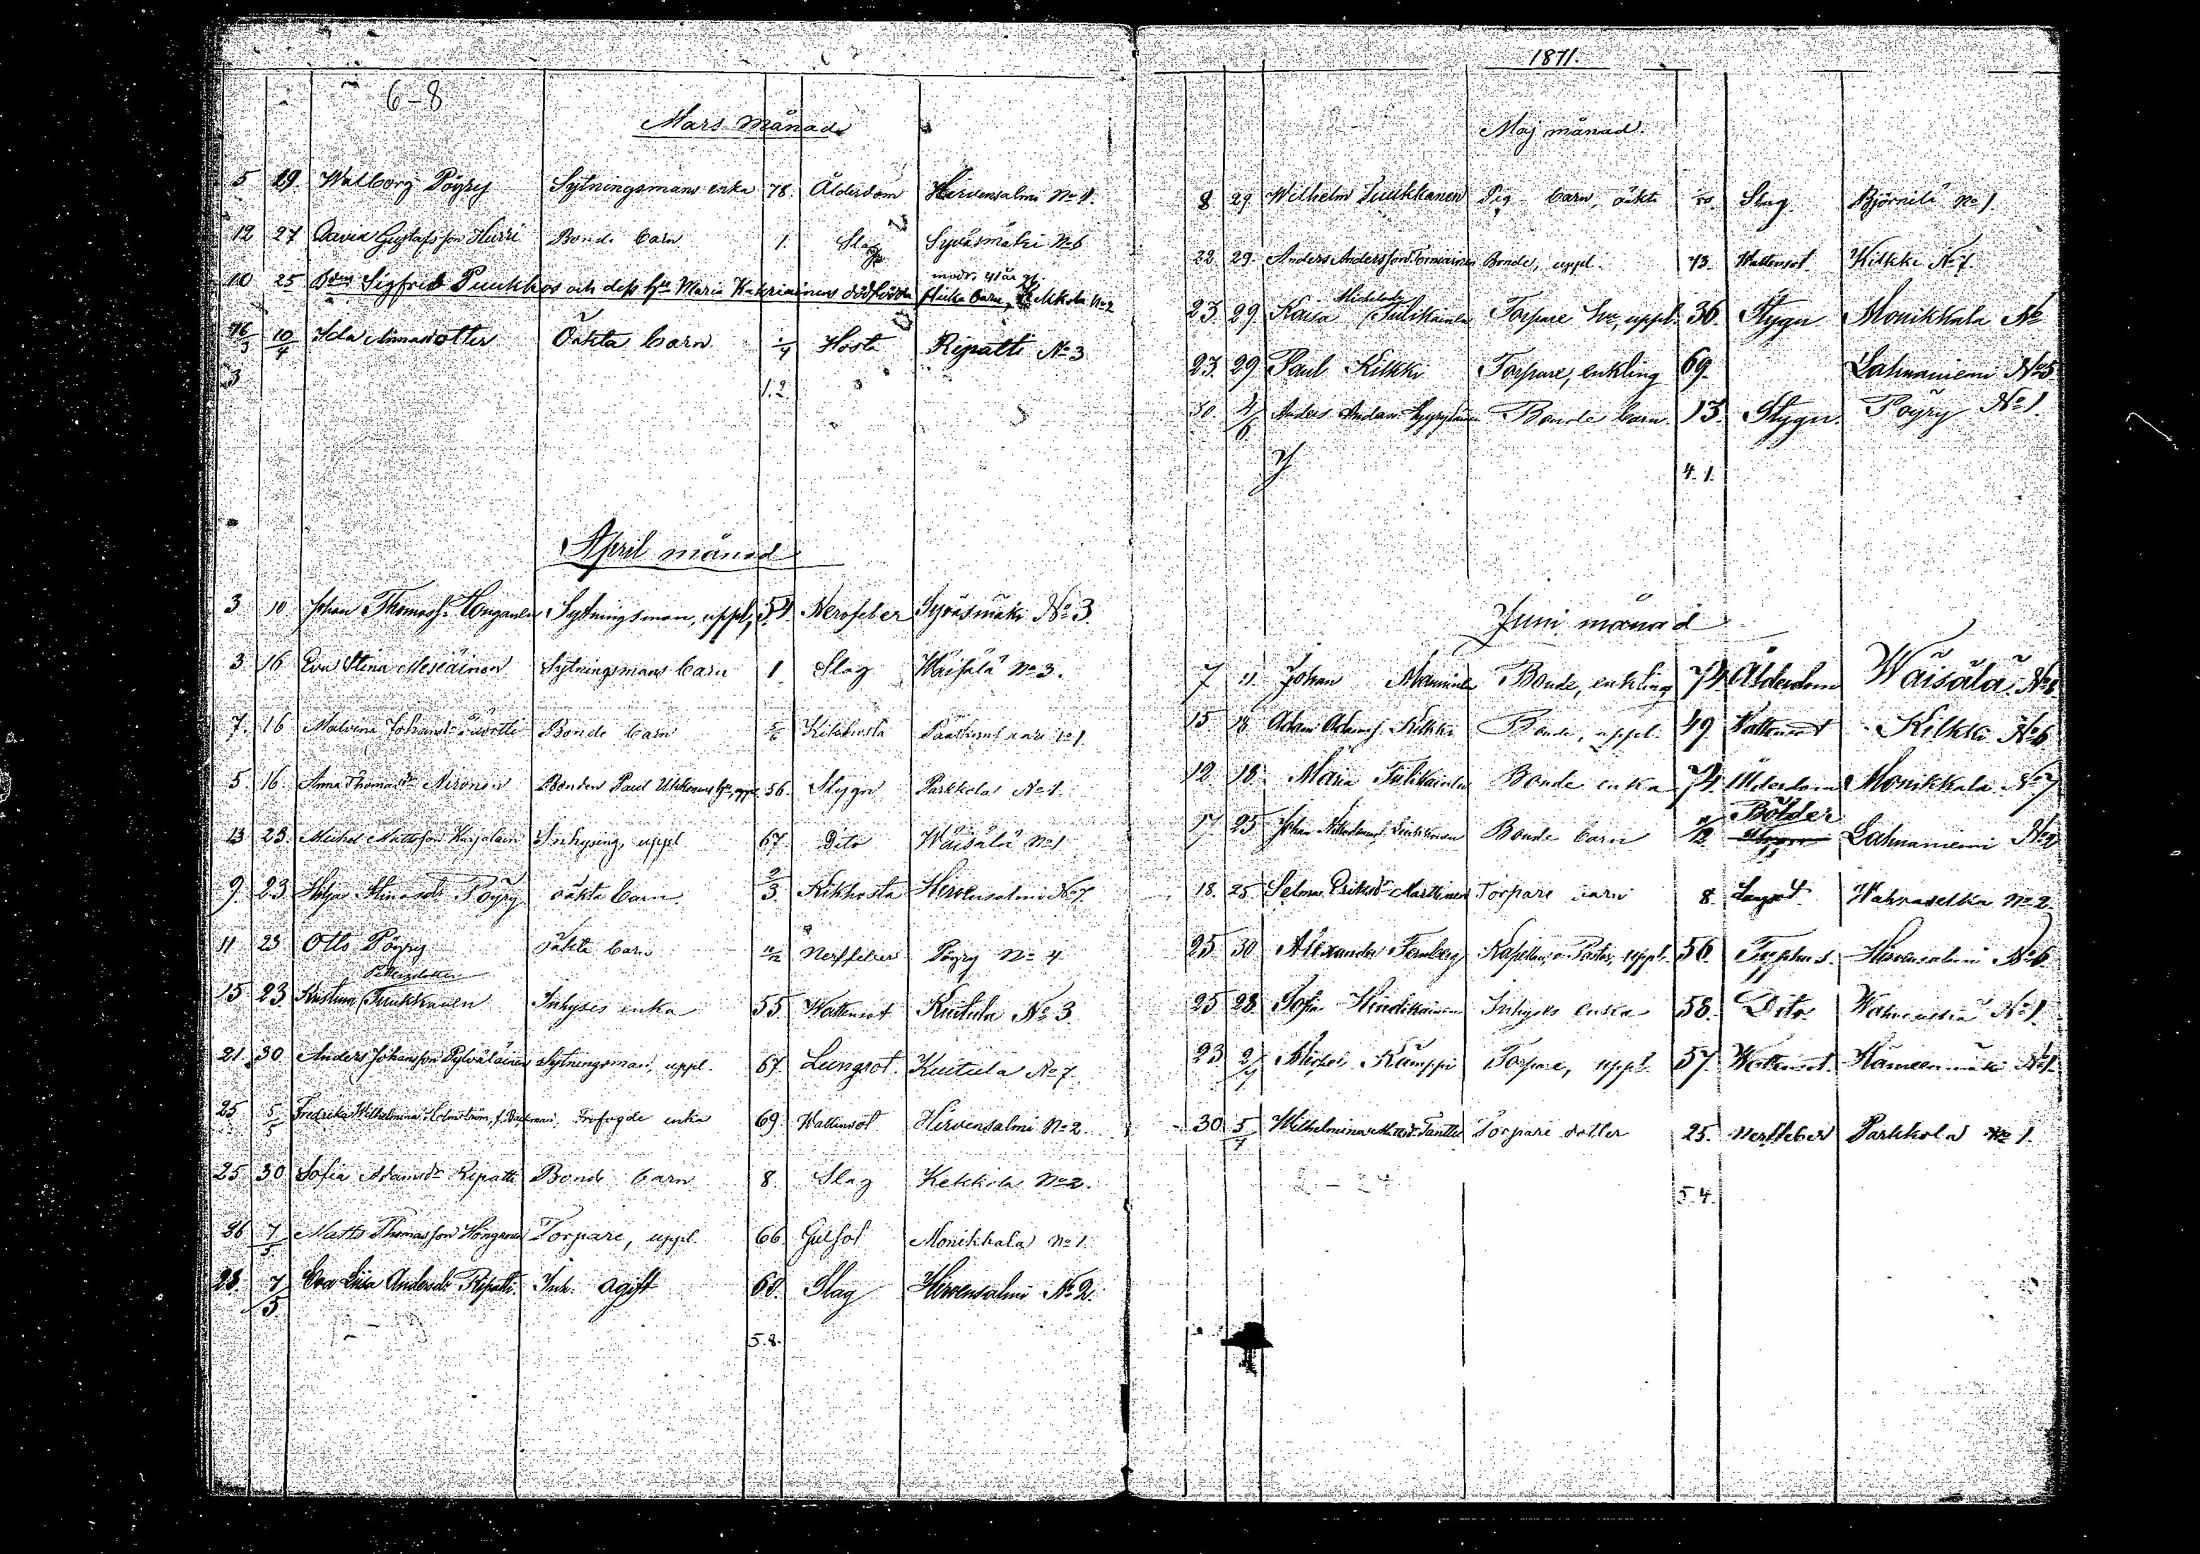 6-8
Mars månad
5 19. Walborg Pöyry Sytningsmans enka 78. Ålderdom Hirvensalmi No 4.
12 27 David Gustafsson Hurri Bonde barn 1. Slag Syväsmäki No 6
modr. 41 år gl.
10 25 Bond. Sigfrid Puukkos och dess hu Maria Kakriainens dödfödda flicka barn, Kekkola No 2
16/3 10/4 Ida Annasdotter Oäkta barn Hosta Ripatti No 3
3 1.2.
April månad
3 10 Johan Thomass. Honganen Sytningsman, uppl, 54 Nervfeber Syväsmäki No 3
3. 16 Eva Stina Meseäinen Sytningsmans barn 1 Slag Wäisälä No 3.
7. 16 Malvina Johansdr Bonde barn Kikhosta No 1.
5 16. Anna Thomasdr Nironen Bonden Paul hu, uppl 56. Stygn Parkkola No 1.
13 23. Michel Mattsson Karjalain Inhysing, uppl 67. Dito Wäisälä No 1
9 23 Stinasdr Pöyry oäkta barn 2/3 Kikhosta Hirvensalmi No 7.
11 23 Otto Pöyry Oäkta barn Nerffeber Pöyry No 4
Pettersdotter
15 23 Kristina Puukkanen Inhyses enka 55 Wattensot Kuitula No 3
21. 30. Anders Johansson Pylväläinen Sytningsman, uppl. 67. Lungsot. Kuitula No 7
25 5/5 Fredrika Wilhelmina Holmström, f. enka 69. Wattensot Hirvensalmi No 2
25 30 Sofia Adamsdr Ripatti Bonde barn 8. Slag Kekkola No 2.
26 7/5 Matts Thomasson Honganen Torpare, uppl. 66 Gulsot Monikkala No 1.
28 7/5 Eva Lisa Andersdr Ripatti. Inh. ogift 60. Slag Hirvensalmi No 2.
5.8.
1871.
Maj månad.
8 29 Wilhelm Puukkanen Pig barn, oäkta Slag Björnilä No 1
22. 29. Anders Andersson Bonde, uppl. 43. Wattensot. Kilkki No 7
Michelsdr
23. 29 Kaisa Tulikainen Torpare hu, uppl. 36. Stygn Monikkala No
23. 29 Paul Kilkki Torpare, enkling 69. Lahnaniemi No 5
30. 4/6 Anders Anders. Bonde barn. 13. Stygn. Pöyry No 1.
4.1.
Juni månad
7 11 Johan Manninen Bonde, enkling 74 Ålderdom Wäisälä No
15 18 Adam Adamss. Kilkki Bonde, uppl. 49 Wattensot Kilkki No 6
12 18. Maria Tulikainen Bonde enka 74 Ålderdom Monikkala No 7
17 25 Johan Bonde barn Bölder Lahnaniemi No
18. 25. Selma Eriksdr Marttinen Torpare barn 8. Lungsot. Wahvaselkä No 2
25 30 Alexander Fernberg Kapellan o. Pastor, uppl. 56. Typhus. Hirvensalmi No 6
25 28 Sofia Hindikainen Inhyses enka 58. Dito Wahvaselkä No 1.
23 2/7 Michel Kämppi Torpare, uppl. 57 Wattensot. Hämeenmäki No 1.
30 5/7 Wilhelmina Torpare dotter 25. Nerffeber Parkkola No 1.
5.4.